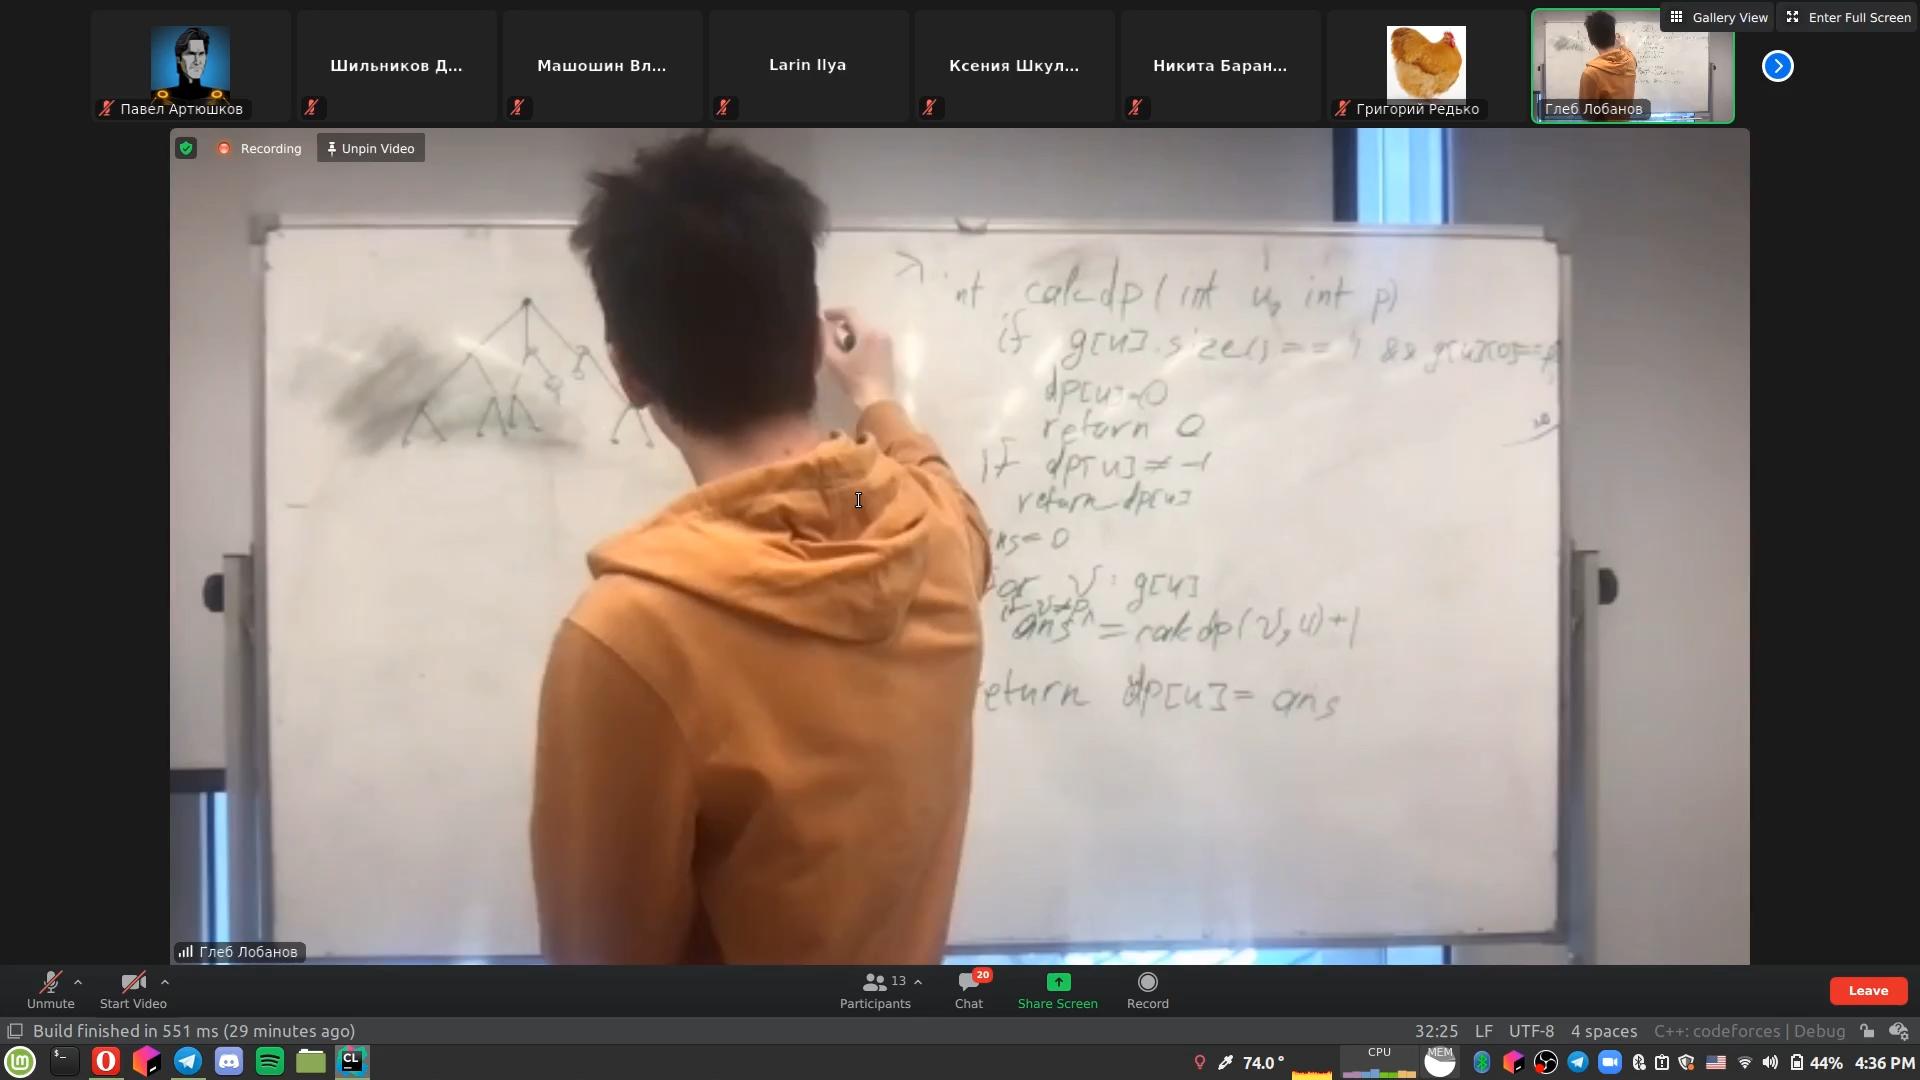 Gallery View
Enter Full Screen
Павел Артюшков
Шильников Д...
Машошин Вл...
Larin Ilya
Ксения Шкул...
Никита Баран...
Григорий Редько
Глеб Лобанов
Recording
Unpin Video
int calcdp(int u, int p)
if g[u].size()==1 && g[u][0]==p
dp[u]=0
return 0
if dp[u]≠-1
return dp[u]
ans=0
for v: g[u]
if v≠p
ans^=calcdp(v,u)+1
return dp[u]=ans
Глеб Лобанов
Unmute
Start Video
13
Participants
20
Chat
Share Screen
Record
Leave
Build finished in 551 ms (29 minutes ago)
32:25
LF
UTF-8
4 spaces
C++: codeforces | Debug
CL
74.0°
CPU
MEM
44%
4:36 PM